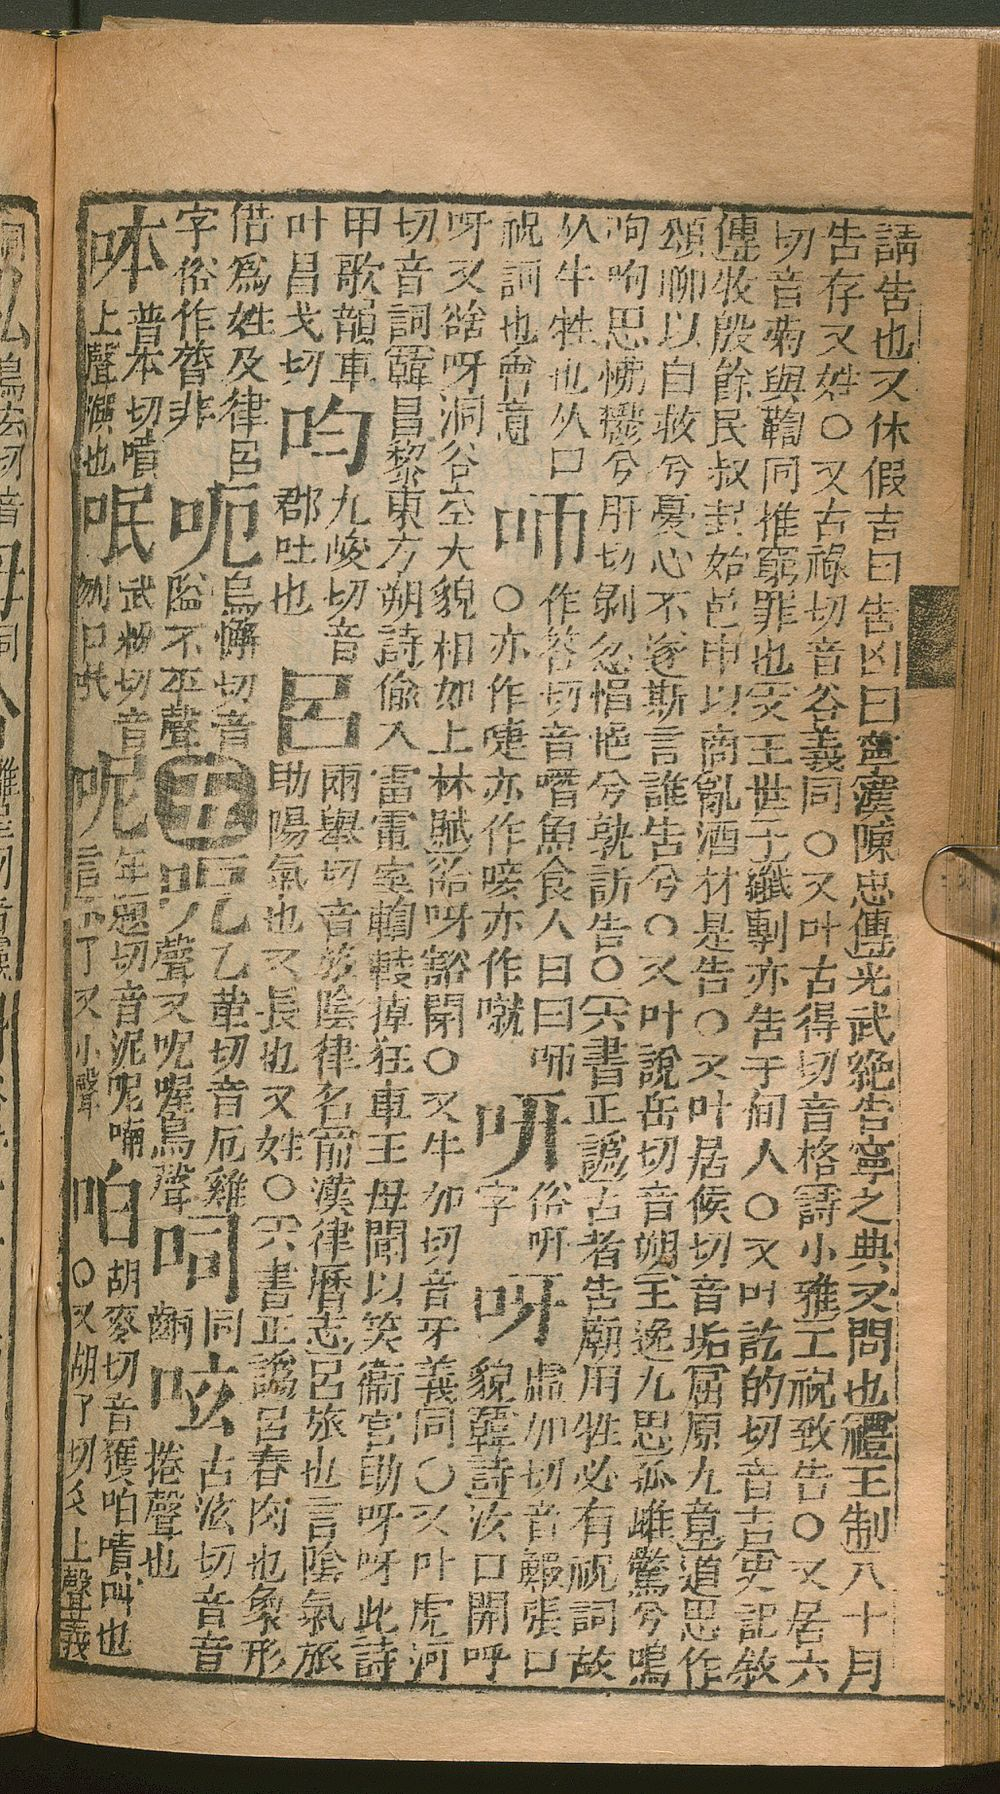 請告也又休假吉曰告凶曰寧漢陳忠傳光武絕告寧之典又問也禮王制八十月
告存又姓○又古祿切音谷義同○又叶古得切音格詩小雅工祝致告○又居六
切音菊與鞫同推窮罪也文王世子纖剸亦告于甸人○又叶訖的切音吉史記敘
傳收殷餘民叔封始邑申以商亂酒材是告○又叶居候切音垢屈原九章道思作
頌聊以自救兮憂心不遂斯言誰告兮○又叶說岳切音朔王逸九思孤雌驚兮鳴
呴呴思怫鬱兮肝切剝忿悁悒兮孰訴告○六書正譌古者告廟用牲必有祝詞故
从牛牲也从口
祝詞也會意
咂
作答切音噆魚食人曰咂
○亦作嚏亦作唼亦作噈
呏
俗呏
字
呀
虛加切音鰕張口
貌韓詩汝口開呼
呀又谽呀洞谷空大貌相如上林賦谽呀豁閉○又牛加切音牙義同○又叶虎河
切音訶韓昌黎東方朔詩偷入雷電室輷輘掉狂車王母聞以笑衞官助呀呀此詩
甲歌韻車
叶昌戈切
呁
九峻切音
郡吐也
呂
兩舉切音膂陰律名前漢律曆志呂旅也言陰氣旅
助陽氣也又長也又姓○六書正譌呂脊肉也象形
借爲姓及律呂
字俗作膂非
呃
烏懈切音
隘不平聲
五
呃
乙革切音厄雞
聲又呃喔鳥聲
呞
同
齝
呟
古泫切音音
捲聲也
呠
普本切噴
上聲潠也
呡
武粉切音
刎口吻
呢
年題切音泥呢喃
言不了又小聲
咟
胡麥切音獲咟嘖叫也
○又胡了切爻上聲義